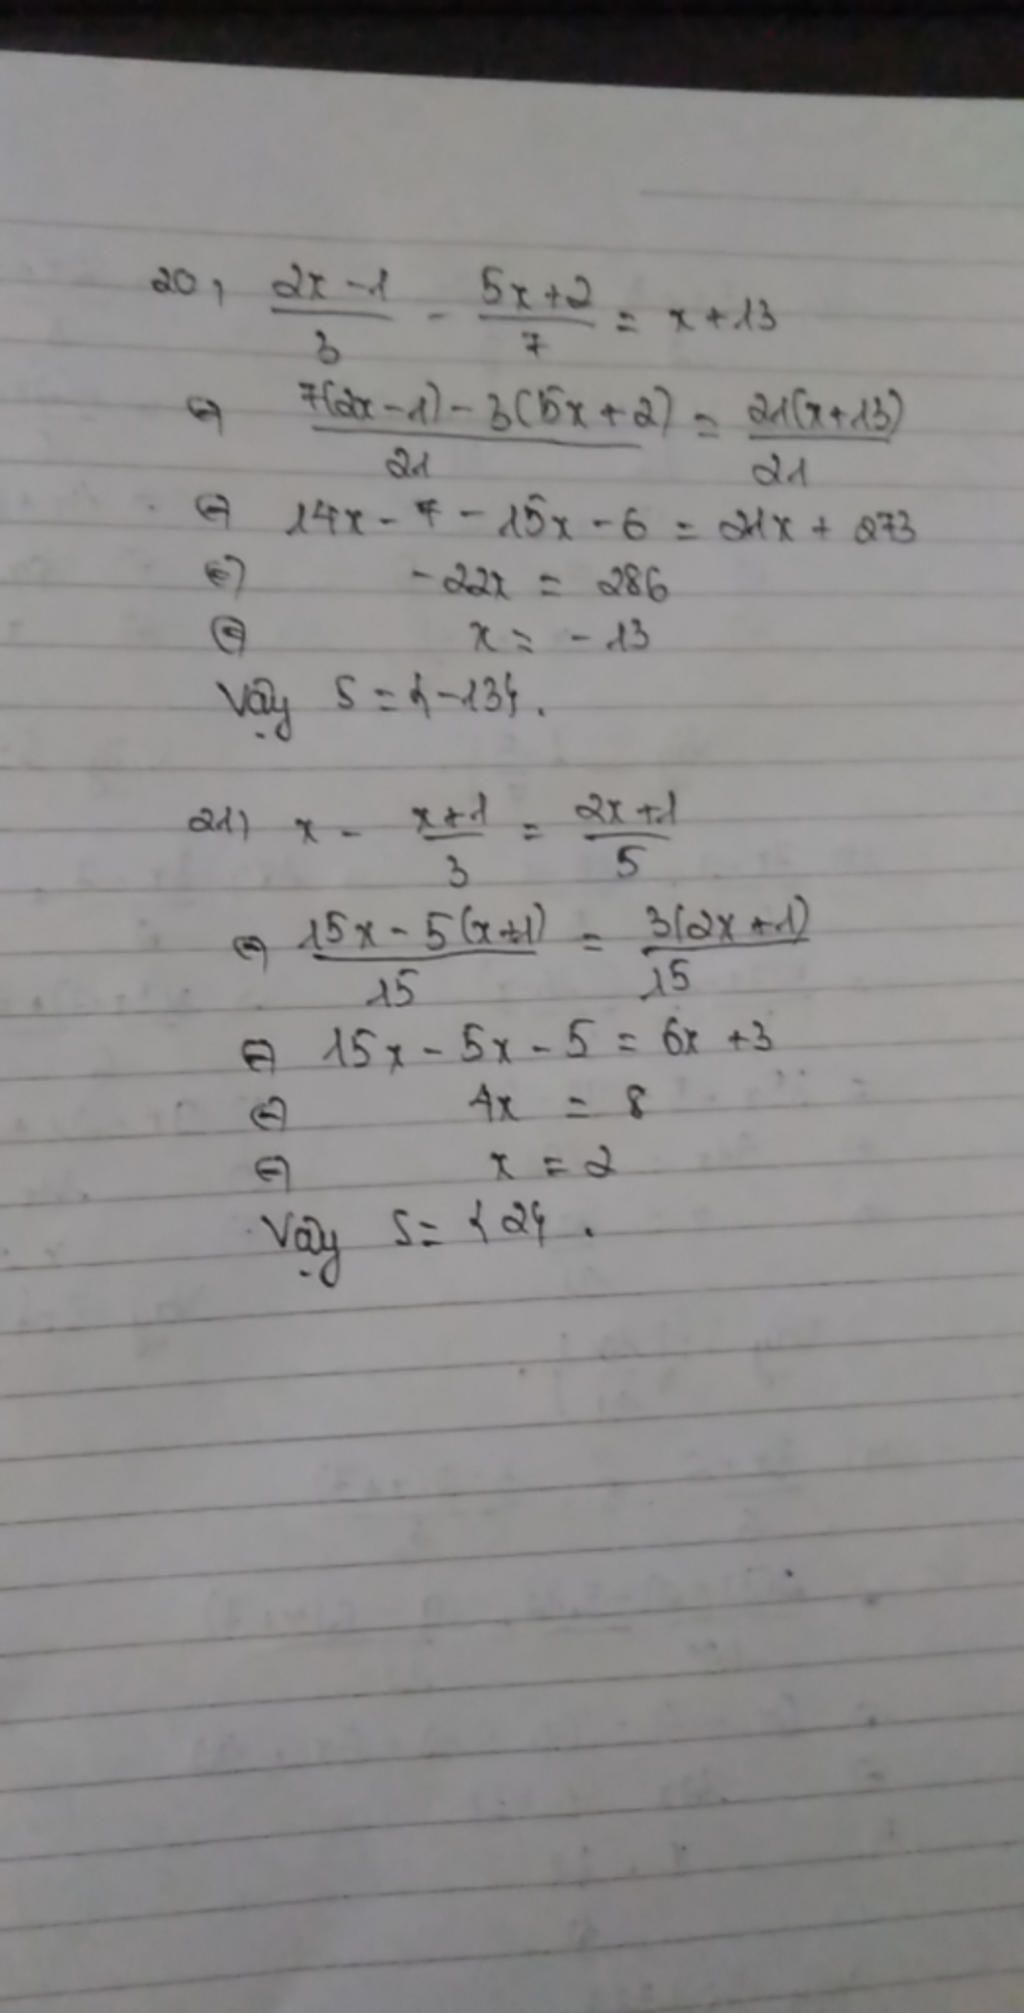 20, (2x-1)/3 - (5x+2)/7 = x+13
⇔ (7(2x-1)-3(5x+2))/21 = 21(x+13)/21
⇔ 14x-7-15x-6 = 21x+273
⇔ -22x = 286
⇔ x = -13
Vậy S={-13}.
21) x - (x+1)/3 = (2x+1)/5
⇔ (15x-5(x+1))/15 = 3(2x+1)/15
⇔ 15x-5x-5 = 6x+3
⇔ 4x = 8
⇔ x = 2
Vậy S={2}.